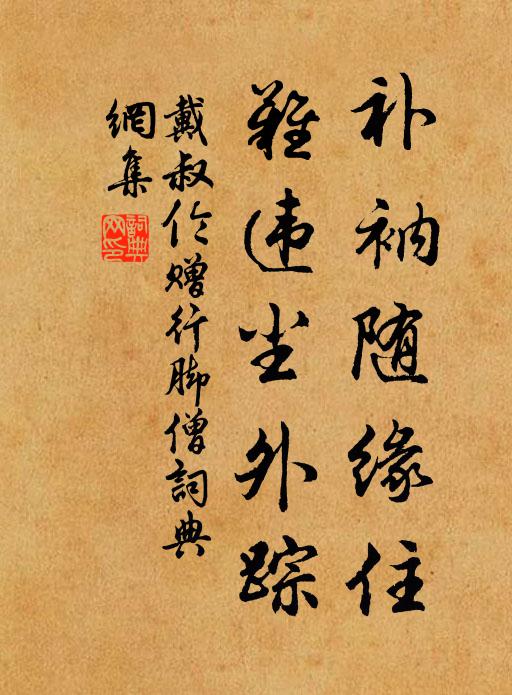 补衲随缘住
难违尘外踪
戴叔伦赠行脚僧词典
網集
詞典
网印